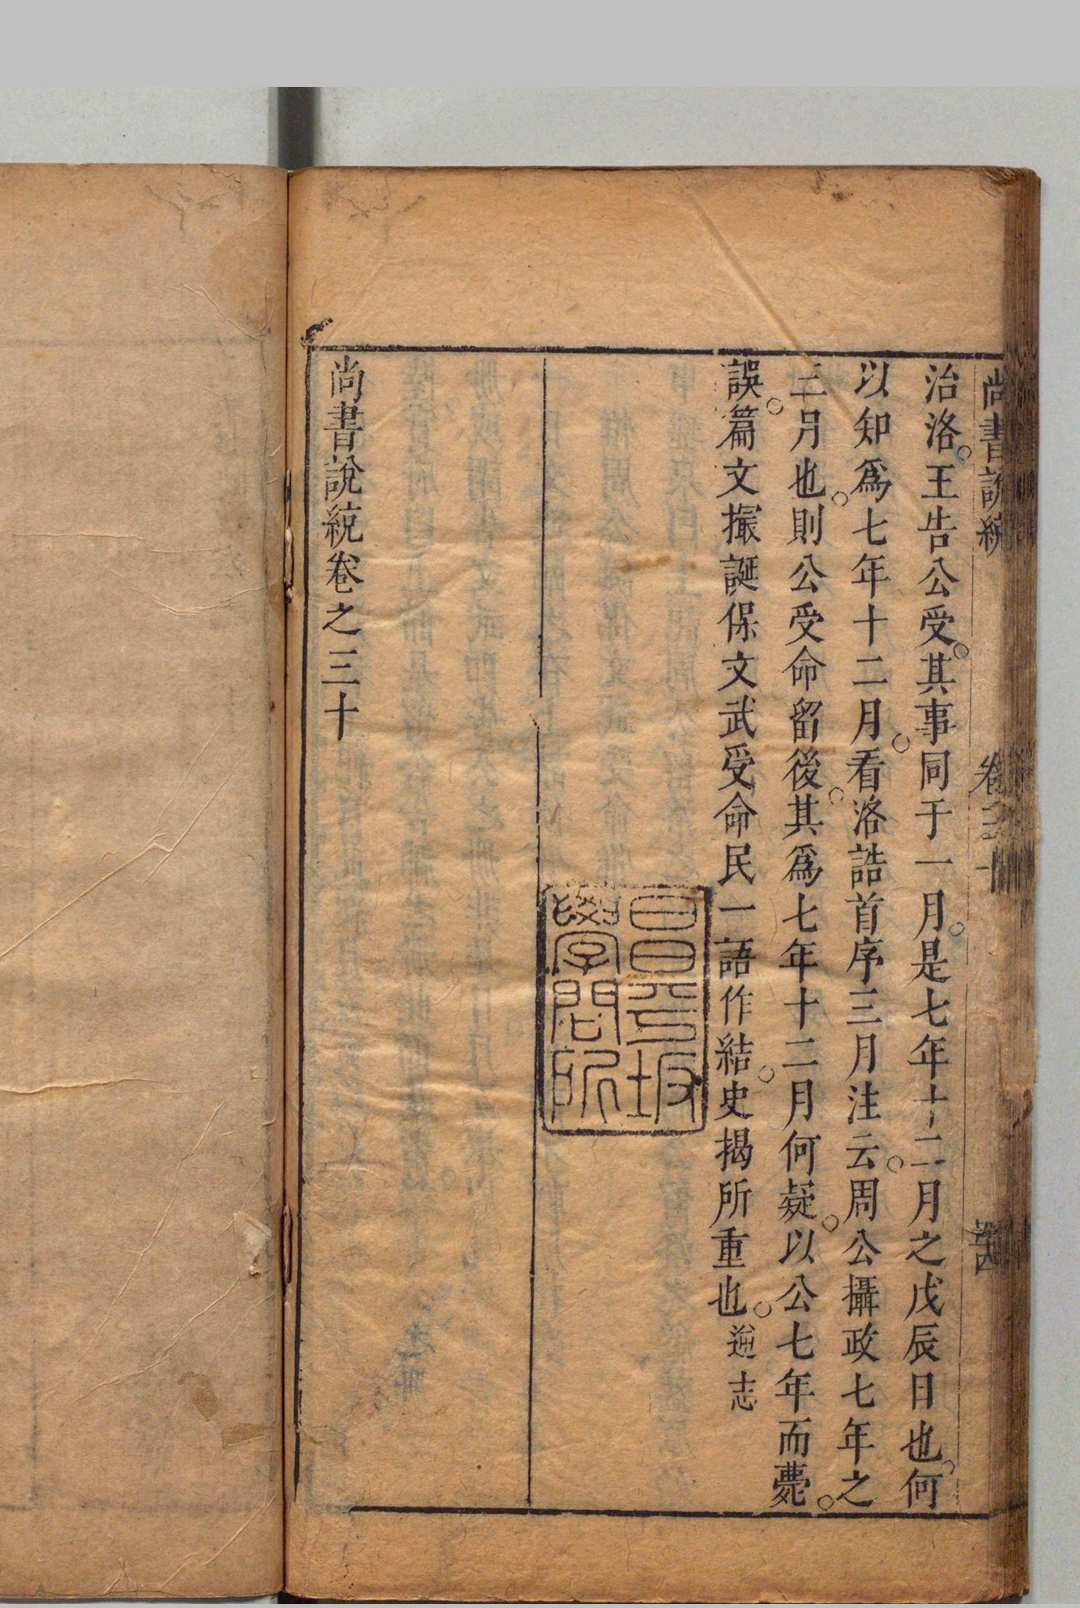 尚書說統
卷三十
治洛。王告公受。其事同于一月。是七年十二月之戊辰日也。何
以知爲七年十二月。看洛誥首序三月注云。周公攝政七年之
三月也。則公受命留後。其爲七年十二月何疑。以公七年而薨。
誤。篇文撮誕保文武受命民一語作結。史揭所重也。
志
昌平坂
學問所
尚書說統卷之三十